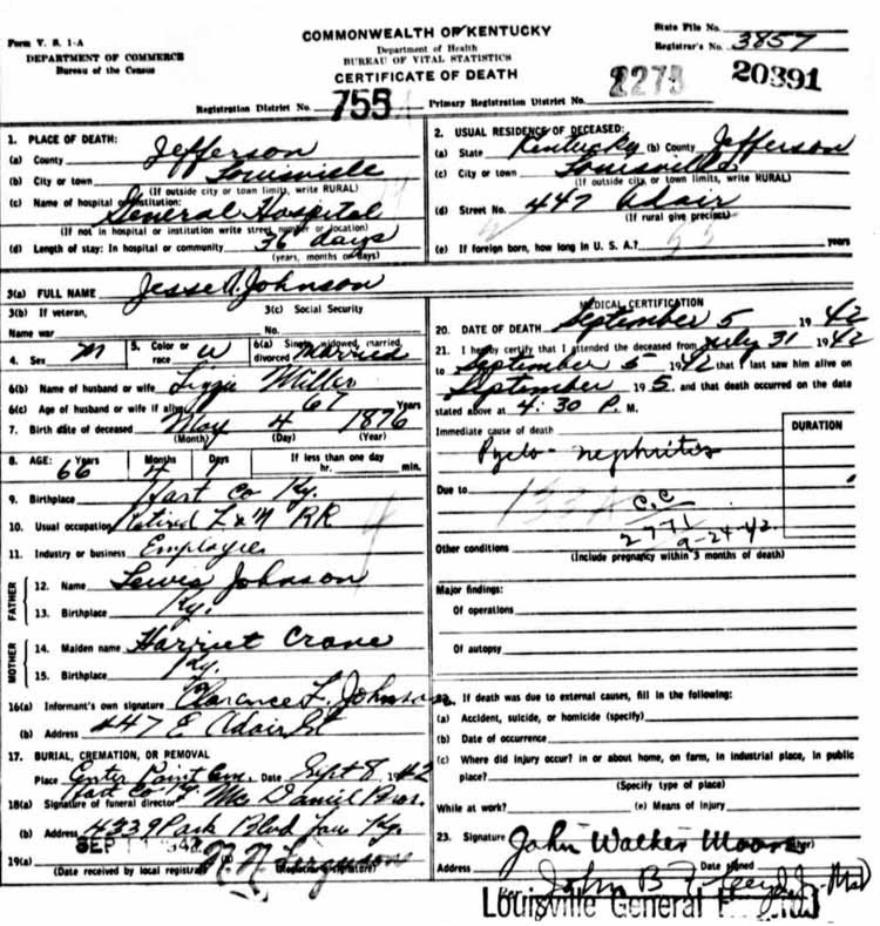 Form V. S. 1-A
DEPARTMENT OF COMMERCE
Bureau of the Census
COMMONWEALTH OF KENTUCKY
Department of Health
BUREAU OF VITAL STATISTICS
CERTIFICATE OF DEATH
State File No.
Registrar's No. 3857
2275 20391
Registration District No. 755 Primary Registration District No.
1. PLACE OF DEATH:
(a) County Jefferson
(b) City or town Louisville
(If outside city or town limits, write RURAL)
(c) Name of hospital or institution:
General Hospital
(If not in hospital or institution write street number or location)
(d) Length of stay: In hospital or community 36 days
(years, months or days)
2. USUAL RESIDENCE OF DECEASED:
(a) State Kentucky (b) County Jefferson
(c) City or town Louisville
(If outside city or town limits, write RURAL)
(d) Street No. 447 Adair
(If rural give precinct)
(e) If foreign born, how long in U. S. A.? years
3(a) FULL NAME Jesse A. Johnson
3(b) If veteran,
Name war
3(c) Social Security
No.
4. Sex M
5. Color or
race W
6(a) Single, widowed, married,
divorced Married
6(b) Name of husband or wife Lizzie Miller
6(c) Age of husband or wife if alive 67 Years
7. Birth date of deceased May 4 1876
(Month) (Day) (Year)
8. AGE: Years Months Days If less than one day
66 4 1 hr. min.
9. Birthplace Hart Co Ky.
10. Usual occupation Retired L & N RR
11. Industry or business Employee
FATHER
12. Name Lewis Johnson
13. Birthplace Ky.
MOTHER
14. Maiden name Harriet Crane
15. Birthplace Ky.
16(a) Informant's own signature Clarence L. Johnson
(b) Address 447 E Adair St
17. BURIAL, CREMATION, OR REMOVAL
Place Center Point Cem. Date Sept 8, 1942
Hart Co Ky.
18(a) Signature of funeral director Mc Daniel Bros.
(b) Address 4339 Park Blvd Lou Ky.
19(a) SEP 11 1942
(Date received by local registrar) (Registrar's signature)
MEDICAL CERTIFICATION
20. DATE OF DEATH September 5 1942
21. I hereby certify that I attended the deceased from July 31 1942
to September 5 1942 that I last saw him alive on
September 195, and that death occurred on the date
stated above at 4:30 P. M.
Immediate cause of death DURATION
Pyelo-nephritis
Due to 133A
C.C
2771
9-24-42
Other conditions
(Include pregnancy within 3 months of death)
Major findings:
Of operations
Of autopsy
22. If death was due to external causes, fill in the following:
(a) Accident, suicide, or homicide (specify)
(b) Date of occurrence
(c) Where did injury occur? in or about home, on farm, in industrial place, in public
place?
(Specify type of place)
While at work? (e) Means of injury
23. Signature John Walker Moore
Address Date signed
John B Floyd Jr. MD
Louisville General